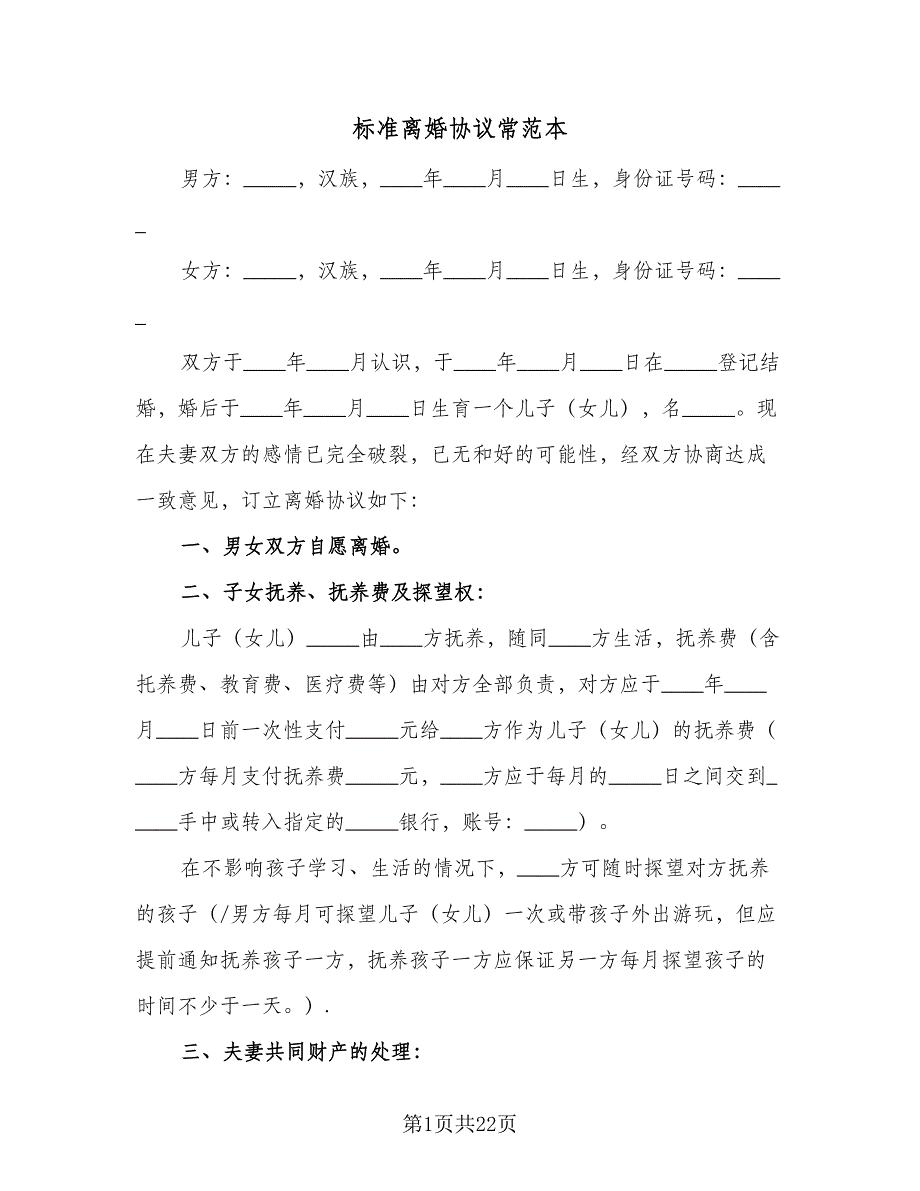 标准离婚协议常范本
男方：_____，汉族，____年____月____日生，身份证号码：____
_
女方：_____，汉族，____年____月____日生，身份证号码：____
_
双方于____年____月认识，于____年____月____日在_____登记结
婚，婚后于____年____月____日生育一个儿子（女儿），名_____。现
在夫妻双方的感情已完全破裂，已无和好的可能性，经双方协商达成
一致意见，订立离婚协议如下：
一、男女双方自愿离婚。
二、子女抚养、抚养费及探望权：
儿子（女儿）_____由____方抚养，随同____方生活，抚养费（含
托养费、教育费、医疗费等）由对方全部负责，对方应于____年____
月____日前一次性支付_____元给____方作为儿子（女儿）的抚养费（
____方每月支付抚养费_____元，____方应于每月的_____日之间交到_
____手中或转入指定的_____银行，账号：_____）。
在不影响孩子学习、生活的情况下，____方可随时探望对方抚养
的孩子（/男方每月可探望儿子（女儿）一次或带孩子外出游玩，但应
提前通知抚养孩子一方，抚养孩子一方应保证另一方每月探望孩子的
时间不少于一天。）.
三、夫妻共同财产的处理：
第1页共22页